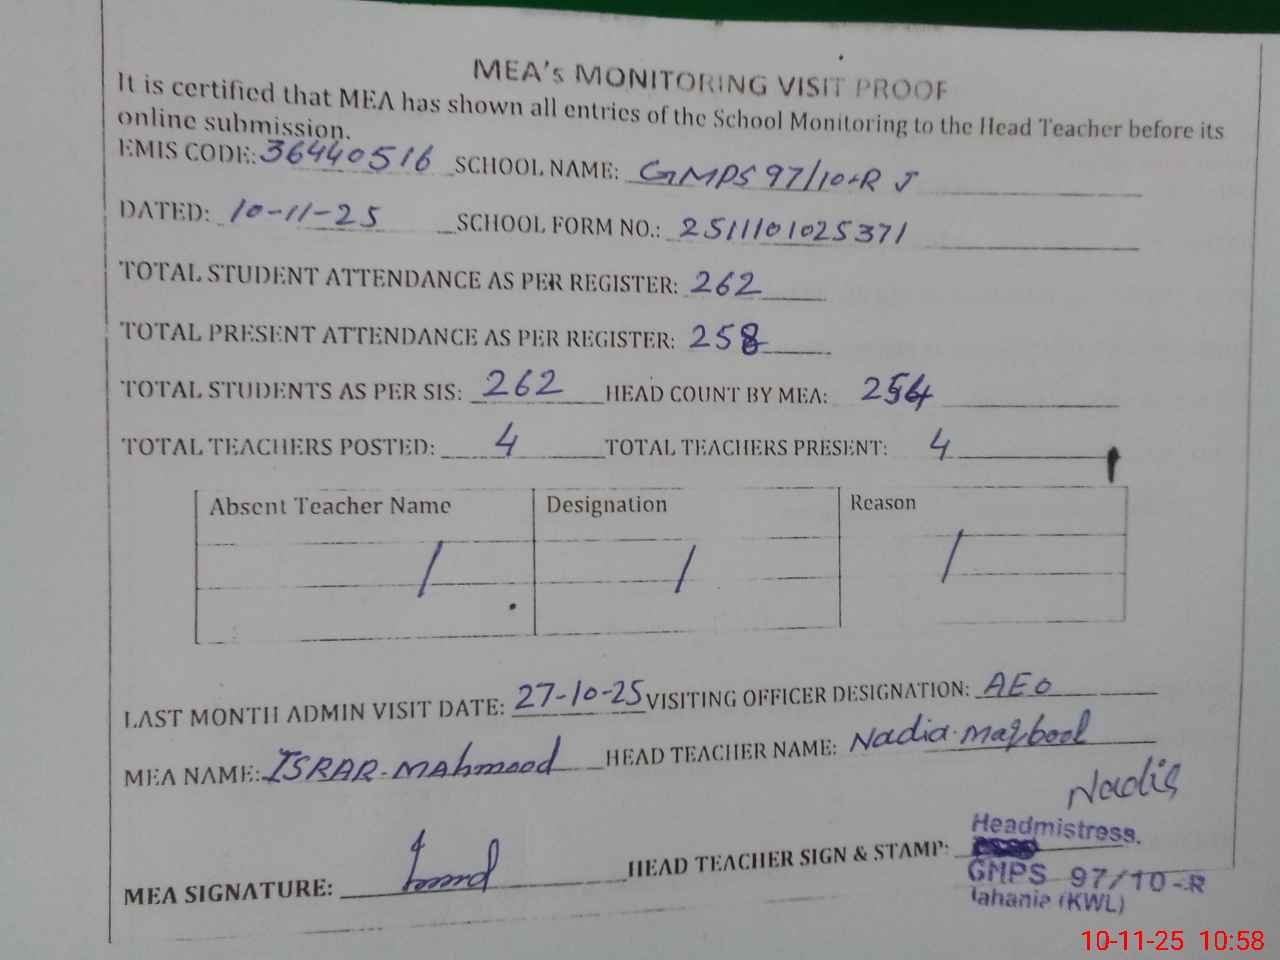 MEA's MONITORING VISIT PROOF
It is certified that MEA has shown all entries of the School Monitoring to the Head Teacher before its
online submission.
EMIS CODE: 36440516 SCHOOL NAME: GMPS 97/10-R J
DATED: 10-11-25 SCHOOL FORM NO.: 2511101025371
TOTAL STUDENT ATTENDANCE AS PER REGISTER: 262
TOTAL PRESENT ATTENDANCE AS PER REGISTER: 258
TOTAL STUDENTS AS PER SIS: 262 HEAD COUNT BY MEA: 254
TOTAL TEACHERS POSTED: 4 TOTAL TEACHERS PRESENT: 4
Absent Teacher Name Designation Reason
/ / /
LAST MONTH ADMIN VISIT DATE: 27-10-25 VISITING OFFICER DESIGNATION: AEO
MEA NAME: ISRAR-MAhmood HEAD TEACHER NAME: Nadia maqbool
Nadia
MEA SIGNATURE: HEAD TEACHER SIGN & STAMP:
Headmistress.
GMPS 97/10-R
Jahania (KWL)
10-11-25 10:58